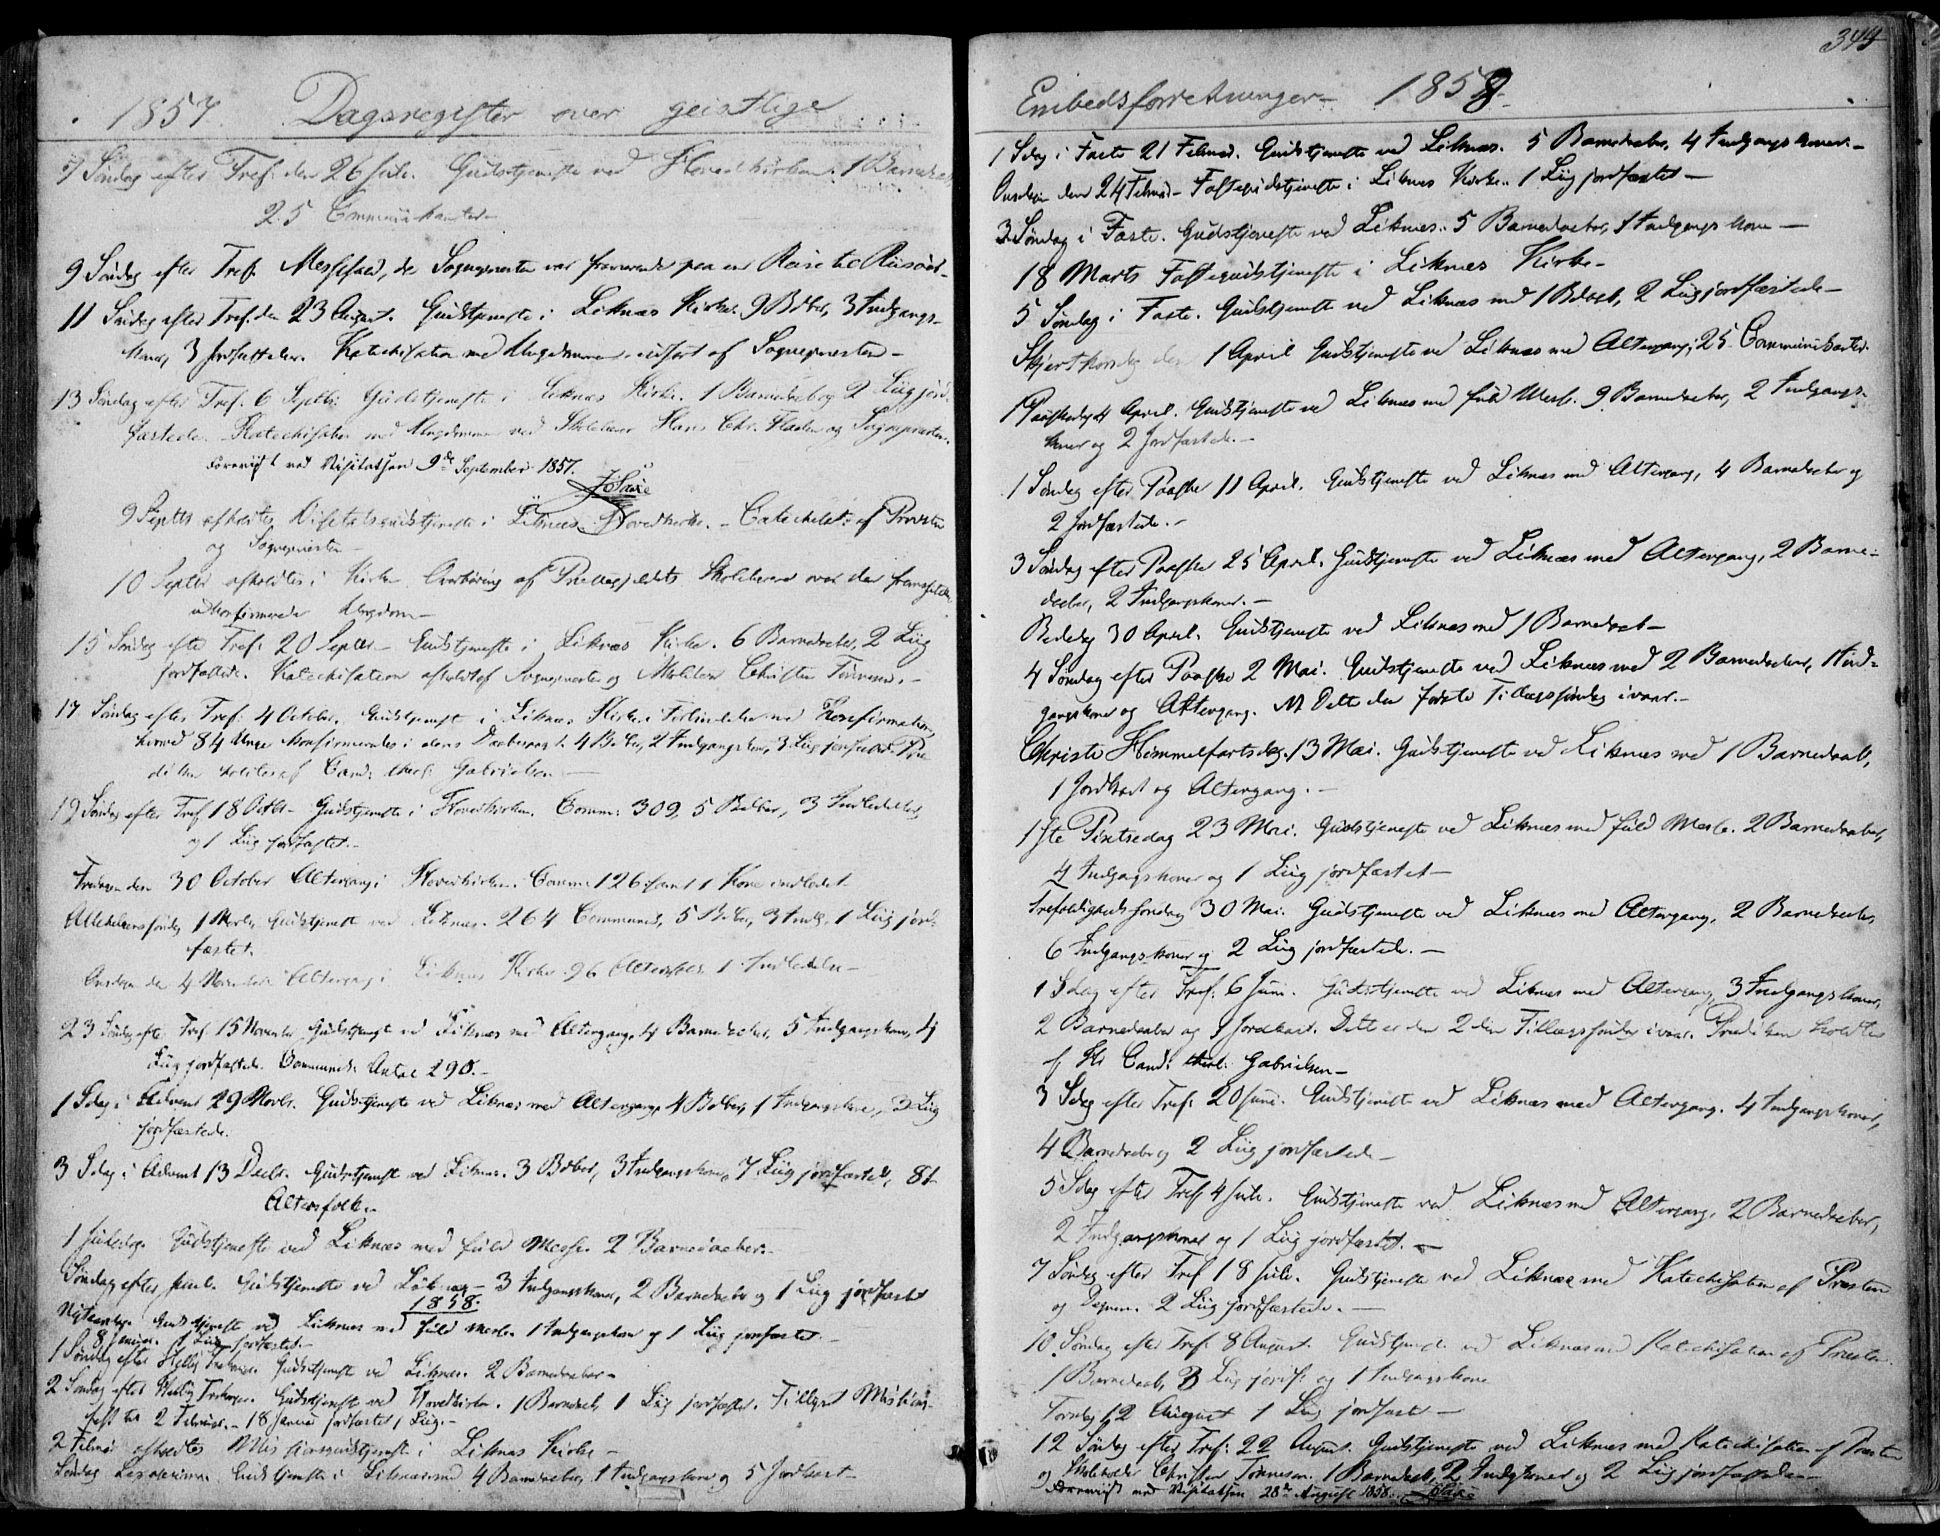 1857. Dagsregister over geistlige
7 Søndag efter Tref: den 26 Juli. Gudstjeneste ved Hovedkirken. 1 Barnedaab
25 Communikanter
9 Søndag efter Tref. Messefald, da Sognepresten var fraværende paa en Reise til Riisøer.
11 Søndag efter Tref. den 23 August. Gudstjeneste i Liknæs Kirke. 9 Bdber, 3 Indgangs-
koner, 3 Jordfæstelser. Katechisation med Ungdommen udført af Sognepresten
13 Søndag efter Tref. 6 Septbr: Gudstjeneste i Liknæs Kirke. 1 Barnedaab og 2 Liig jord-
fæstede. Katechisation med Ungdommen ved Skolelærer Hans Chr. Fladen og Sognepresten.
Foreviist ved Visitatsen 9de September 1857.
9 Septbr afholdtes Visitatsgudstjeneste i Liknæs Hovedkirke. Catechiset: af Provsten
og Sognepresten
10 Septbr afholdtes i Kirken Overhøring af Prestegjeldets Skolelærere over den fremstillede
ukonfirmerede Ungdom
15 Søndag efter Tref: 20 Septbr Gudstjeneste i Liknæs Kirke. 6 Barnedaaber, 2 Liig
jordfæstede. Katechisation afholdt af Sognepresten og Skolelærer Christen Tønnesen.
17 Søndag efter Tref: 4 October. Gudstjeneste i Liknæs Kirke i Forbindelse med Konfirmation,
hvorved 84 Unge konfirmeredes i deres Daabspagt. 4 Bdber, 2 Indgangskoner, 3 Liig jordfæstede. Præ
diken holdtes af Cand: theol: Gabrielsen
19 Søndag efter Tref 18 Octbr Gudstjeneste i Hovedkirken. Comm: 309, 5 Bdber, 3 Indledelser,
og 1 Liig jordfæstet.
Fredagen den 30 October Altergang i Hovedkirken. Comm: 126 samt 1 Kone indledet
Allehelgenssøndag 1 Novbr. Gudstjeneste ved Liknæs. 264 Communik, 5 Bdber, 3 Indl, 1 Liig jord-
fæstet.
Onsdagen den 4 November Altergang i Liknæs Kirke. 96 Altergjæster. 1 Indledelse
23 Søndag efter Tref 15 November Gudstjeneste ved Liknæs med Altergang, 4 Barnedaaber, 5 Indgangskoner, 4
Liig jordfæstede. Communik: Antal 290.
1 Sdag i Advent 29 Novbr. Gudstjeneste ved Liknæs med Altergang. 4 Bdber, 1 Indgangskone, 3 Liig
jordfæstede.
3 Sdag i Advent 13 Decbr. Gudstjeneste ved Liknæs. 3 Bdber, 3 Indgangskoner, 7 Liig jordfæstede, 81
Altersfolk.
1 Juledag. Gudstjeneste ved Liknæs med fuld Messe. 2 Barnedaaber.
Søndag efter Juul. Gudstjeneste ved Liknæs 3 Indgangskoner, 2 Barnedaaber og 1 Liig jordfæstet
1858.
Nytaarsdag. Gudstjeneste ved Liknæs med fuld Messe. 1 Indgangskone og 1 Liig jordfæstet.
8 Januar. 1 Liig jordfæstet.
1 Søndag efter Hellig Trekonger. Gudstjeneste ved Liknæs. 2 Barnedaaber
2 Søndag efter Hellig Trekonger. Gudstjeneste ved Hovedkirken. 1 Barnedaab, 1 Liig jordfæstet. Tillyst Missions-
fest til 2 Februar. 18 Januar jordfæstet 1 Liig.
2 Februar afholdtes Missionsgudstjeneste i Liknæs Kirke
Søndag Sexagesima. Gudstjeneste i Liknæs med 4 Barnedaaber, 1 Indgangskone og 5 Jordkast
344
Embedsforretninger. 1858.
1 Sdag i Faste 21 Februar. Gudstjeneste ved Liknæs. 5 Barnedaaber, 4 Indgangskoner.
Onsdagen den 24 Februar Fastegudstjeneste i Liknæs Kirke. 1 Liig jordfæstet
3 Søndag i Faste. Gudstjeneste ved Liknæs. 5 Barnedaaber, 1 Indgangskone
18 Marts Fastegudstjeneste i Liknæs Kirke
5 Søndag i Faste. Gudstjeneste ved Liknæs med 1 Bdaab, 2 Liig jordfæstede
Skjærtorsdag den 1 April Gudstjeneste ved Liknæs med Altergang; 25 Communikanter.
1 Paaskedag 4 April. Gudstjeneste ved Liknæs med fuld Messe. 9 Barnedaaber, 2 Indgangs-
koner og 2 Jordfæstede.
1 Søndag efter Paaske 11 April. Gudstjeneste ved Liknæs med Altergang, 4 Barnedaaber og
2 Jordfæstede.
3 Søndag efter Paaske 25 April. Gudstjeneste ved Liknæs med Altergang, 2 Barne-
daaber, 2 Indgangskoner.
Bededag 30 April. Gudstjeneste ved Liknæs med 1 Barnedaab
4 Søndag efter Paaske 2 Mai. Gudstjeneste ved Liknæs med 2 Barnedaaber, 1 Ind-
gangskone og Altergang. NB Dette den første Tillægssøndag i vaar.
Christi Himmelfartsdag. 13 Mai. Gudstjeneste ved Liknæs med 1 Barnedaab,
1 Jordkast og Altergang.
1ste Pintsedag 23 Mai. Gudstjeneste ved Liknæs med fuld Messe. 2 Barnedaaber,
4 Indgangskoner og 1 Liig jordfæstet
Trefoldigheds Søndag 30 Mai. Gudstjeneste ved Liknæs med Altergang, 2 Barnedaaber,
6 Indgangskoner og 2 Liig jordfæstede.
1 Sdag efter Tref: 6 Juni. Gudstjeneste ved Liknæs med Altergang, 3 Indgangskoner,
2 Barnedaaber og 1 Jordkast. Dette er den 2den Tillægssøndag i vaar. Prædiken holdtes
af Hr Cand: theol: Gabrielsen
3 Sdag efter Tref: 20 Juni. Gudstjeneste ved Liknæs med Altergang. 4 Indgangskoner,
4 Barnedaaber og 2 Liig jordfæstede
5 Sdag efter Tref 4 Juli. Gudstjeneste ved Liknæs med Altergang, 2 Barnedaaber,
2 Indgangskoner og 1 Liig jordfæstet.
7 Søndag efter Tref 18 Juli. Gudstjeneste ved Liknæs med Katechisation af Præsten
og Degnen. 2 Liig jordfæstede.
10. Søndag efter Tref: 8 August. Gudstjeneste ved Liknæs med Katechisation af Præsten.
1 Barnedaab, 3 Liig jordf: og 1 Indgangskone
Torsdag 12 August 1 Liig jordfæst
12 Søndag efter Tref: 22 August. Gudstjeneste ved Liknæs med Katechisation af Præsten
og Skolelærer Christen Tønnesen. 1 Barnedaab, 2 Indgkoner og 2 Liig jordfæstede
Foreviist ved Visitatsen 28de August 1858.